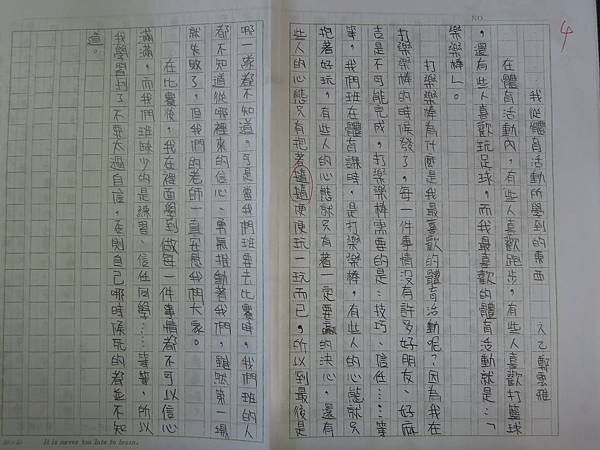 NO.
4
我從體育活動所學到的東西　六乙鄭雲雅
在體育活動內，有些人喜歡跑步，有些人喜歡打籃球
，還有些人喜歡玩足球，而我最喜歡的體育活動就是…「
樂樂棒」。
打樂樂棒為什麼是我最喜歡的體育活動呢？因為我在
打樂樂棒的時候發了，每一件事情沒有許多好朋友、好麻
吉是不可能完成，打樂樂棒需要的是：技巧、信任……等
等，我們班在體育課時，是打樂樂棒，有些人的心態就只
抱著好玩，有些人的心態就只有著一定要贏的決心，還有
些人的心態只有把著隨隨便便玩一玩而已，所以到最後是
哪一隊都不知道。可是當我們班要去比賽時，我們班的人
都不知道從哪裡來的信心、勇氣推動著我們，雖然第一場
就失敗了，但我們的老師一直安慰我們大家。
在比賽後，我在裡面學到做每一件事情都不可以信心
滿滿，而我們班缺少的是練習、信任同學……等等，所以
我學習到了不要太過自信，否則自己哪時候死的都並不知
道。
It is never too late to learn.